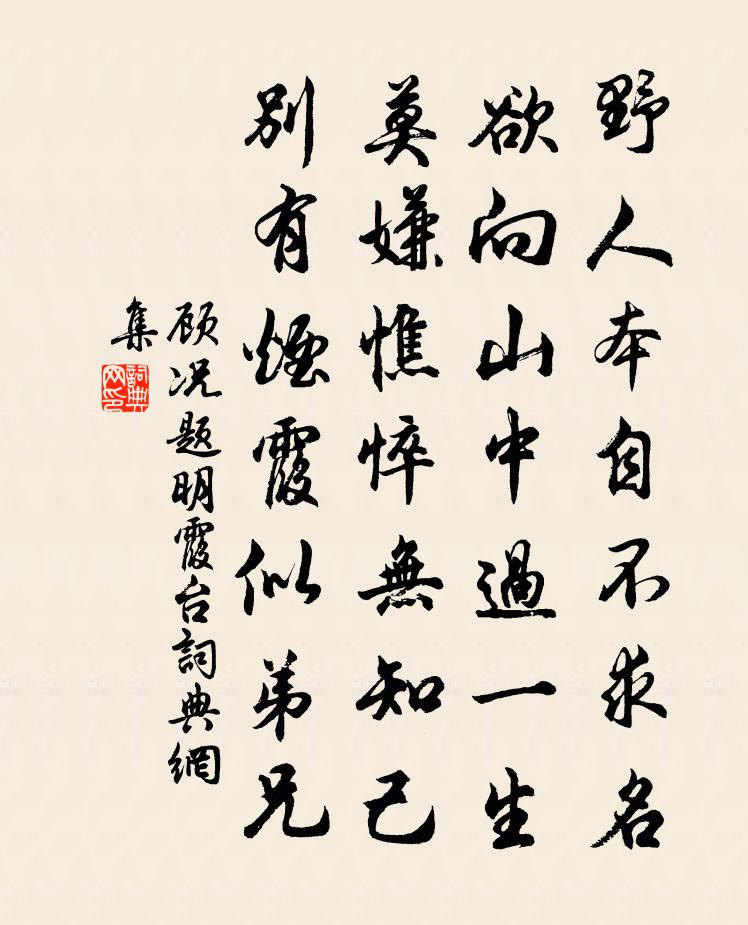 野人本自不求名
欲向山中過一生
莫嫌憔悴無知己
別有煙霞似弟兄
顾况题明霞台詞典網
集
詞典
网印